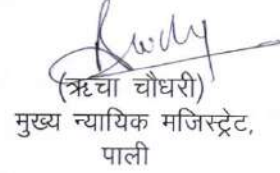 (ऋचा चौधरी)
मुख्य न्यायिक मजिस्ट्रेट,
पाली